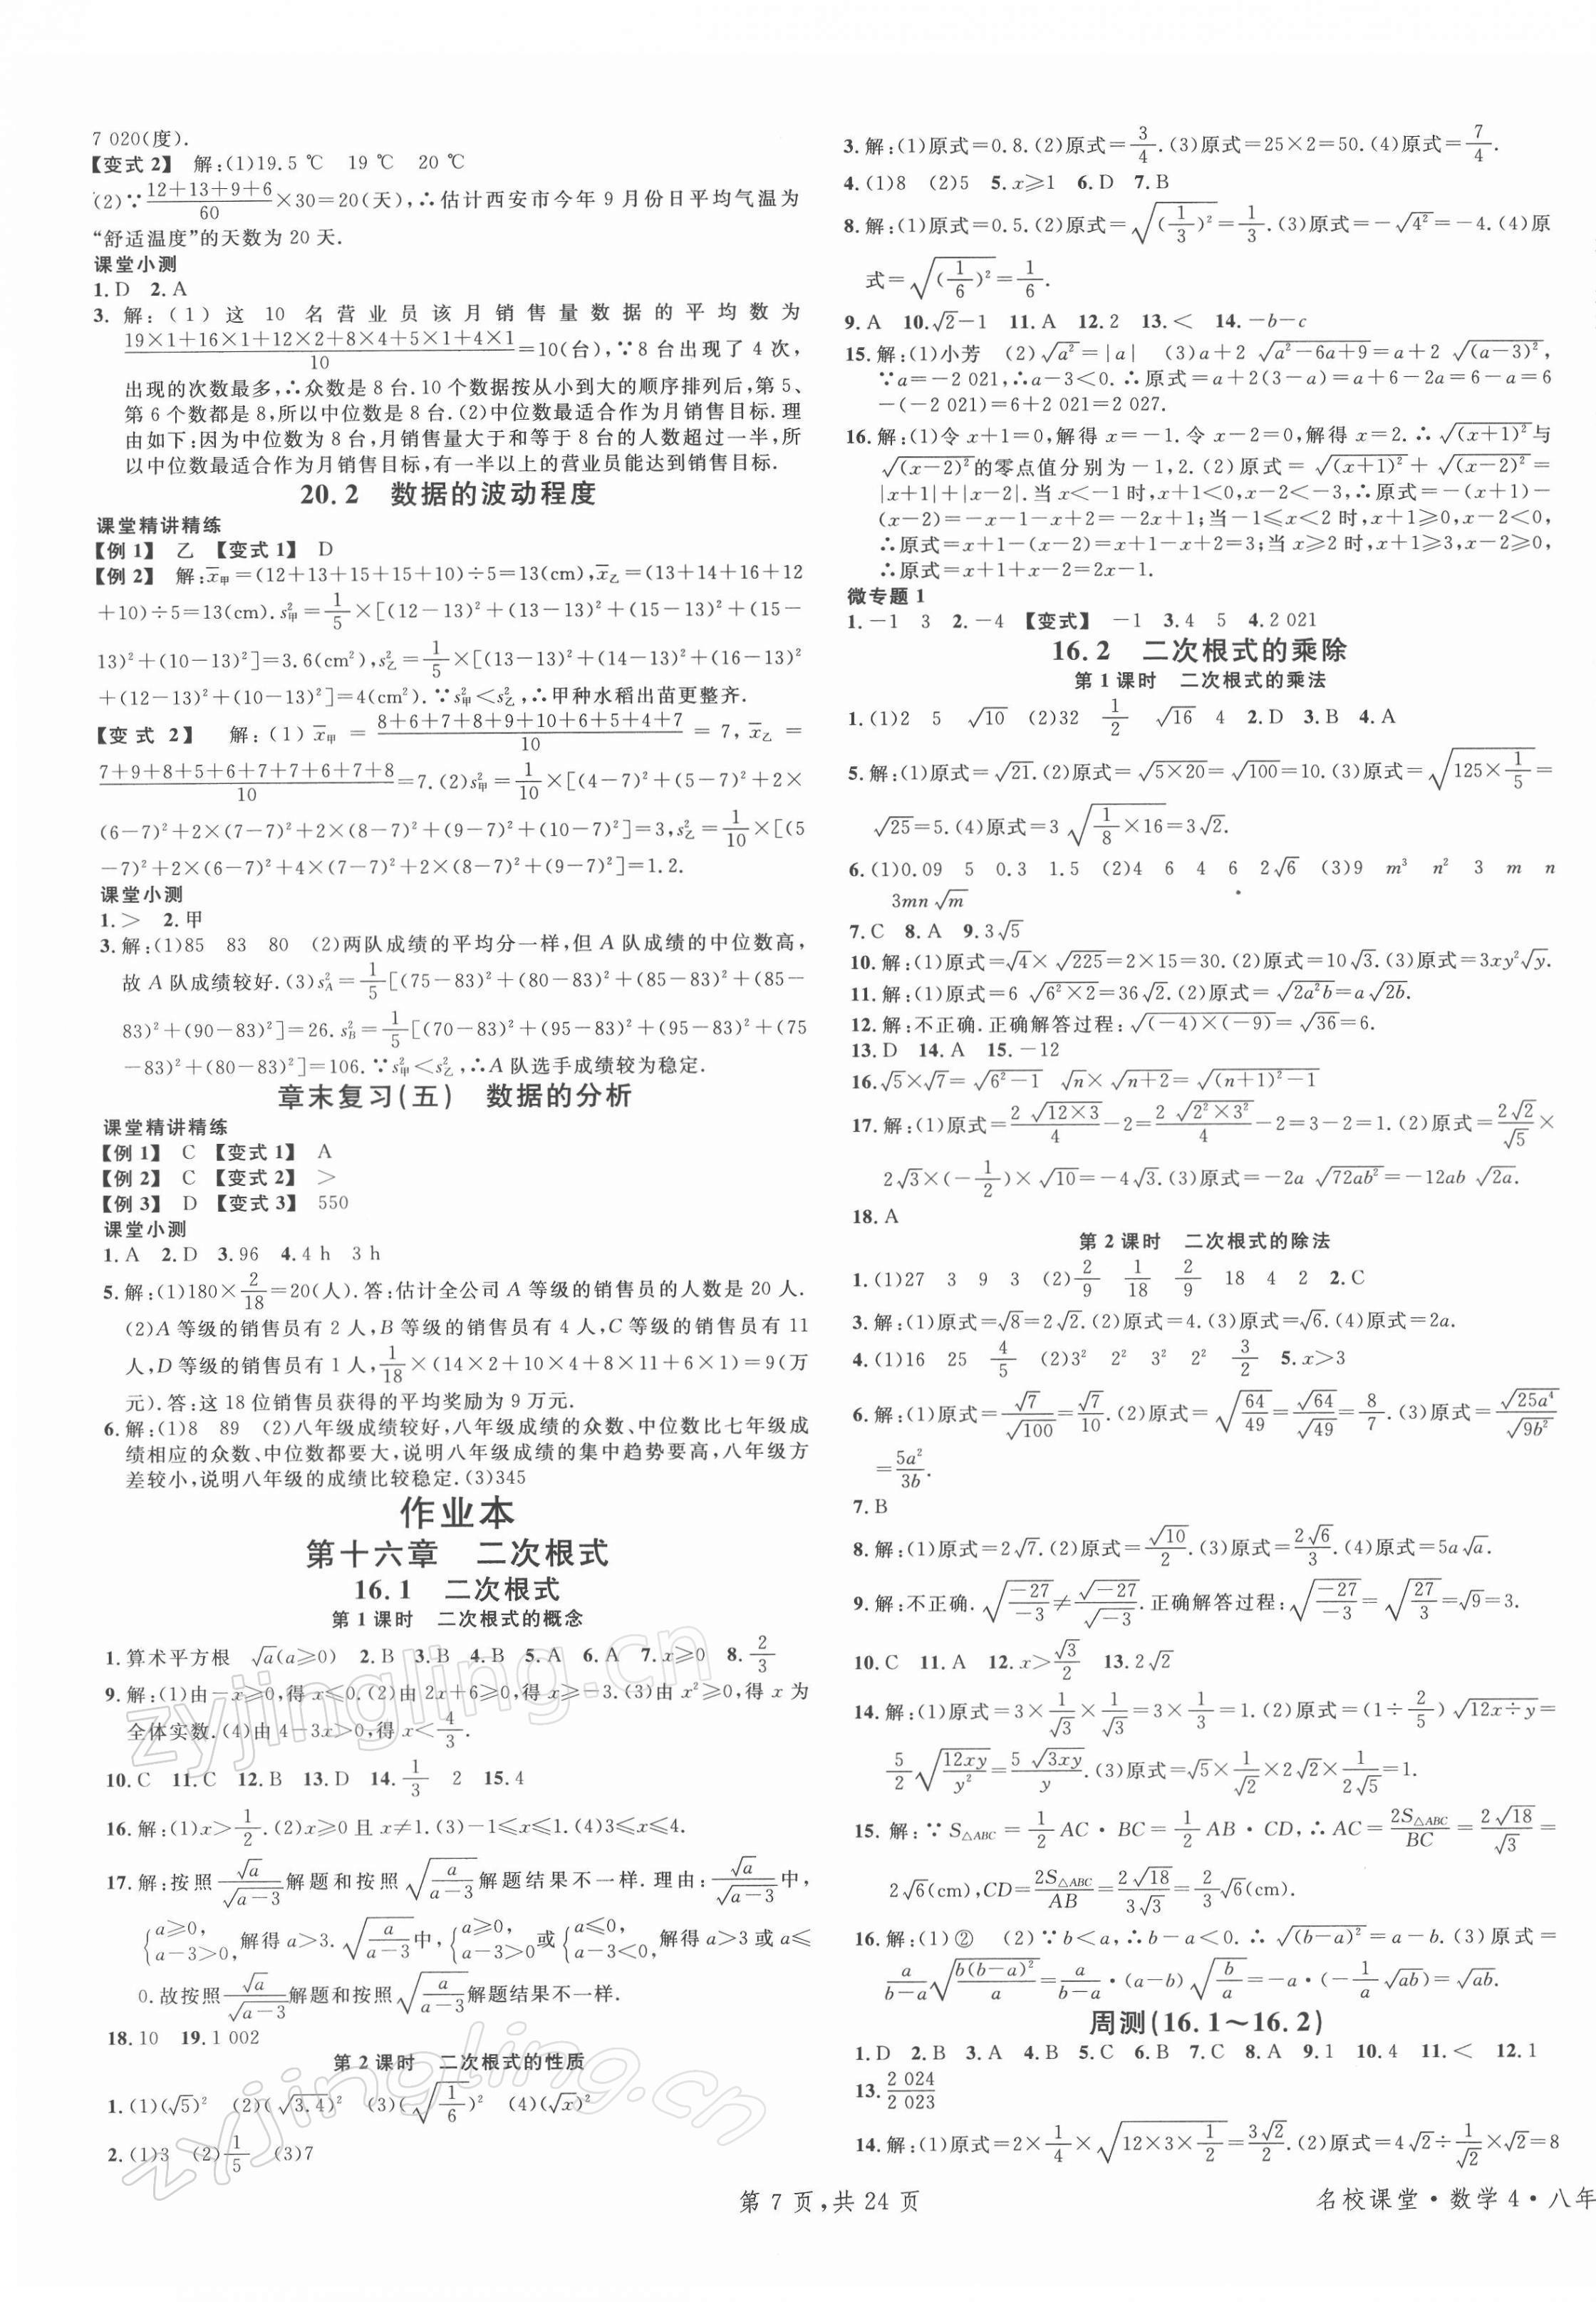 7 020(度).
【变式 2】 解:(1)19.5 ℃ 19 ℃ 20 ℃
(2)∵$\frac{12+13+9+6}{60}$×30=20(天),∴估计西安市今年 9 月份日平均气温为
“舒适温度”的天数为 20 天.
课堂小测
1.D 2.A
3.解:(1)这 10 名营业员该月销售量数据的平均数为
$\frac{19×1+16×1+12×2+8×4+5×1+4×1}{10}$=10(台),∵8 台出现了 4 次,
出现的次数最多,∴众数是 8 台.10 个数据按从小到大的顺序排列后,第 5、
第 6 个数都是 8,所以中位数是 8 台.(2)中位数最适合作为月销售目标.理
由如下:因为中位数为 8 台,月销售量大于和等于 8 台的人数超过一半,所
以中位数最适合作为月销售目标,有一半以上的营业员能达到销售目标.
20.2 数据的波动程度
课堂精讲精练
【例 1】 乙 【变式 1】 D
【例 2】 解:$\overline{x}_甲$=(12+13+15+15+10)÷5=13(cm),$\overline{x}_乙$=(13+14+16+12
+10)÷5=13(cm).$s^2_甲$=$\frac{1}{5}$×[(12-13)²+(13-13)²+(15-13)²+(15-
13)²+(10-13)²]=3.6(cm²),$s^2_乙$=$\frac{1}{5}$×[(13-13)²+(14-13)²+(16-13)²
+(12-13)²+(10-13)²]=4(cm²).∵$s^2_甲$<$s^2_乙$,∴甲种水稻出苗更整齐.
【变式 2】 解:(1)$\overline{x}_甲$=$\frac{8+6+7+8+9+10+6+5+4+7}{10}$=7,$\overline{x}_乙$=
$\frac{7+9+8+5+6+7+7+6+7+8}{10}$=7.(2)$s^2_甲$=$\frac{1}{10}$×[(4-7)²+(5-7)²+2×
(6-7)²+2×(7-7)²+2×(8-7)²+(9-7)²+(10-7)²]=3,$s^2_乙$=$\frac{1}{10}$×[(5
-7)²+2×(6-7)²+4×(7-7)²+2×(8-7)²+(9-7)²]=1.2.
课堂小测
1.> 2.甲
3.解:(1)85 83 80 (2)两队成绩的平均分一样,但 A 队成绩的中位数高,
故 A 队成绩较好.(3)$s^2_A$=$\frac{1}{5}$[(75-83)²+(80-83)²+(85-83)²+(85-
83)²+(90-83)²]=26.$s^2_B$=$\frac{1}{5}$[(70-83)²+(95-83)²+(95-83)²+(75
-83)²+(80-83)²]=106.∵$s^2_甲$<$s^2_乙$,∴A 队选手成绩较为稳定.
章末复习(五) 数据的分析
课堂精讲精练
【例 1】 C 【变式 1】 A
【例 2】 C 【变式 2】 >
【例 3】 D 【变式 3】 550
课堂小测
1.A 2.D 3.96 4.4 h 3 h
5.解:(1)180×$\frac{2}{18}$=20(人).答:估计全公司 A 等级的销售员的人数是 20 人.
(2)A 等级的销售员有 2 人,B 等级的销售员有 4 人,C 等级的销售员有 11
人,D 等级的销售员有 1 人,$\frac{1}{18}$×(14×2+10×4+8×11+6×1)=9(万
元).答:这 18 位销售员获得的平均奖励为 9 万元.
6.解:(1)8 89 (2)八年级成绩较好,八年级成绩的众数、中位数比七年级成
绩相应的众数、中位数都要大,说明八年级成绩的集中趋势要高,八年级方
差较小,说明八年级的成绩比较稳定.(3)345
作业本
第十六章 二次根式
16.1 二次根式
第 1 课时 二次根式的概念
1.算术平方根 $\sqrt{a}$(a≥0) 2.B 3.B 4.B 5.A 6.A 7.x≥0 8.$\frac{2}{3}$
9.解:(1)由-x≥0,得 x≤0.(2)由 2x+6≥0,得 x≥-3.(3)由 x²≥0,得 x 为
全体实数.(4)由 4-3x>0,得 x<$\frac{4}{3}$.
10.C 11.C 12.B 13.D 14.$\frac{1}{3}$ 2 15.4
16.解:(1)x>$\frac{1}{2}$.(2)x≥0 且 x≠1.(3)-1≤x≤1.(4)3≤x≤4.
17.解:按照$\frac{\sqrt{a}}{\sqrt{a-3}}$解题和按照$\sqrt{\frac{a}{a-3}}$解题结果不一样.理由:$\frac{\sqrt{a}}{\sqrt{a-3}}$中,
$\begin{cases}a≥0,\\a-3>0,\end{cases}$解得 a>3.$\sqrt{\frac{a}{a-3}}$中,$\begin{cases}a≥0,\\a-3>0\end{cases}$或$\begin{cases}a≤0,\\a-3<0,\end{cases}$解得 a>3 或 a≤
0.故按照$\frac{\sqrt{a}}{\sqrt{a-3}}$解题和按照$\sqrt{\frac{a}{a-3}}$解题结果不一样.
18.10 19.1 002
第 2 课时 二次根式的性质
1.(1)($\sqrt{5}$)² (2)($\sqrt{3.4}$)² (3)($\sqrt{\frac{1}{6}}$)² (4)($\sqrt{x}$)²
2.(1)3 (2)$\frac{1}{5}$ (3)7
3.解:(1)原式=0.8.(2)原式=$\frac{3}{4}$.(3)原式=25×2=50.(4)原式=$\frac{7}{4}$.
4.(1)8 (2)5 5.x≥1 6.D 7.B
8.解:(1)原式=0.5.(2)原式=$\sqrt{(\frac{1}{3})^2}$=$\frac{1}{3}$.(3)原式=-$\sqrt{4^2}$=-4.(4)原
式=$\sqrt{(\frac{1}{6})^2}$=$\frac{1}{6}$.
9.A 10.$\sqrt{2}$-1 11.A 12.2 13.< 14.-b-c
15.解:(1)小芳 (2)$\sqrt{a^2}$=|a| (3)a+2$\sqrt{a^2-6a+9}$=a+2$\sqrt{(a-3)^2}$,
∵a=-2 021,∴a-3<0.∴原式=a+2(3-a)=a+6-2a=6-a=6
-(-2 021)=6+2 021=2 027.
16.解:(1)令 x+1=0,解得 x=-1.令 x-2=0,解得 x=2.∴$\sqrt{(x+1)^2}$与
$\sqrt{(x-2)^2}$的零点值分别为-1,2.(2)原式=$\sqrt{(x+1)^2}$+$\sqrt{(x-2)^2}$=
|x+1|+|x-2|.当 x<-1 时,x+1<0,x-2<-3,∴原式=-(x+1)-
(x-2)=-x-1-x+2=-2x+1;当-1≤x<2 时,x+1≥0,x-2<0,
∴原式=x+1-(x-2)=x+1-x+2=3;当 x≥2 时,x+1≥3,x-2≥0,
∴原式=x+1+x-2=2x-1.
微专题 1
1.-1 3 2.-4 【变式】 -1 3.4 5 4.2 021
16.2 二次根式的乘除
第 1 课时 二次根式的乘法
1.(1)2 5 $\sqrt{10}$ (2)32 $\frac{1}{2}$ $\sqrt{16}$ 4 2.D 3.B 4.A
5.解:(1)原式=$\sqrt{21}$.(2)原式=$\sqrt{5×20}$=$\sqrt{100}$=10.(3)原式=$\sqrt{125×\frac{1}{5}}$=
$\sqrt{25}$=5.(4)原式=3$\sqrt{\frac{1}{8}×16}$=3$\sqrt{2}$.
6.(1)0.09 5 0.3 1.5 (2)4 6 4 6 2$\sqrt{6}$ (3)9 m³ n² 3 m n
3mn$\sqrt{m}$
7.C 8.A 9.3$\sqrt{5}$
10.解:(1)原式=$\sqrt{4}$×$\sqrt{225}$=2×15=30.(2)原式=10$\sqrt{3}$.(3)原式=3xy²$\sqrt{y}$.
11.解:(1)原式=6$\sqrt{6^2×2}$=36$\sqrt{2}$.(2)原式=$\sqrt{2a^2b}$=a$\sqrt{2b}$.
12.解:不正确.正确解答过程:$\sqrt{(-4)×(-9)}$=$\sqrt{36}$=6.
13.D 14.A 15.-12
16.$\sqrt{5}$×$\sqrt{7}$=$\sqrt{6^2-1}$ $\sqrt{n}$×$\sqrt{n+2}$=$\sqrt{(n+1)^2-1}$
17.解:(1)原式=$\frac{2\sqrt{12×3}}{4}$-2=$\frac{2\sqrt{2^2×3^2}}{4}$-2=3-2=1.(2)原式=$\frac{2\sqrt{2}}{\sqrt{5}}$×
2$\sqrt{3}$×(-$\frac{1}{2}$)×$\sqrt{10}$=-4$\sqrt{3}$.(3)原式=-2a$\sqrt{72ab^2}$=-12ab$\sqrt{2a}$.
18.A
第 2 课时 二次根式的除法
1.(1)27 3 9 3 (2)$\frac{2}{9}$ $\frac{1}{18}$ $\frac{2}{9}$ 18 4 2 2.C
3.解:(1)原式=$\sqrt{8}$=2$\sqrt{2}$.(2)原式=4.(3)原式=$\sqrt{6}$.(4)原式=2a.
4.(1)16 25 $\frac{4}{5}$ (2)3² 2² 3² 2² $\frac{3}{2}$ 5.x>3
6.解:(1)原式=$\frac{\sqrt{7}}{\sqrt{100}}$=$\frac{\sqrt{7}}{10}$.(2)原式=$\sqrt{\frac{64}{49}}$=$\frac{\sqrt{64}}{\sqrt{49}}$=$\frac{8}{7}$.(3)原式=$\frac{\sqrt{25a^4}}{\sqrt{9b^2}}$
=$\frac{5a^2}{3b}$.
7.B
8.解:(1)原式=2$\sqrt{7}$.(2)原式=$\frac{\sqrt{10}}{2}$.(3)原式=$\frac{2\sqrt{6}}{3}$.(4)原式=5a$\sqrt{a}$.
9.解:不正确.$\sqrt{\frac{-27}{-3}}$≠$\frac{\sqrt{-27}}{\sqrt{-3}}$.正确解答过程:$\sqrt{\frac{-27}{-3}}$=$\sqrt{\frac{27}{3}}$=$\sqrt{9}$=3.
10.C 11.A 12.x>$\frac{\sqrt{3}}{2}$ 13.2$\sqrt{2}$
14.解:(1)原式=3×$\frac{1}{\sqrt{3}}$×$\frac{1}{\sqrt{3}}$=3×$\frac{1}{3}$=1.(2)原式=(1÷$\frac{2}{5}$)$\sqrt{12x÷y}$=
$\frac{5}{2}\sqrt{\frac{12xy}{y^2}}$=$\frac{5\sqrt{3xy}}{y}$.(3)原式=$\sqrt{5}$×$\frac{1}{\sqrt{2}}$×2$\sqrt{2}$×$\frac{1}{2\sqrt{5}}$=1.
15.解:∵$S_{△ABC}$=$\frac{1}{2}$AC·BC=$\frac{1}{2}$AB·CD,∴AC=$\frac{2S_{△ABC}}{BC}$=$\frac{2\sqrt{18}}{\sqrt{3}}$=
2$\sqrt{6}$(cm),CD=$\frac{2S_{△ABC}}{AB}$=$\frac{2\sqrt{18}}{3\sqrt{3}}$=$\frac{2}{3}\sqrt{6}$(cm).
16.解:(1)② (2)∵b<a,∴b-a<0.∴$\sqrt{(b-a)^2}$=a-b.(3)原式=
$\frac{a}{b-a}\sqrt{\frac{b(b-a)^2}{a}}$=$\frac{a}{b-a}$·(a-b)$\sqrt{\frac{b}{a}}$=-a·(-$\frac{1}{a}\sqrt{ab}$)=$\sqrt{ab}$.
周测(16.1～16.2)
1.D 2.B 3.A 4.B 5.C 6.B 7.C 8.A 9.1 10.4 11.< 12.1
13.$\frac{2 024}{2 023}$
14.解:(1)原式=2×$\frac{1}{4}$×$\sqrt{12×3×\frac{1}{2}}$=$\frac{3\sqrt{2}}{2}$.(2)原式=4$\sqrt{2}$÷$\frac{1}{\sqrt{2}}$×$\sqrt{2}$=8
第 7 页,共 24 页
名校课堂·数学 4·八年
zyjingling.cn
zyjingling.cn